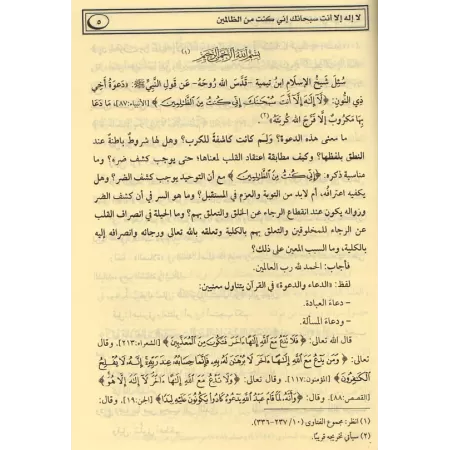 لا إله إلا أنت سبحانك إني كنت من الظالمين
٥
بسم الله الرحمن الرحيم (١)
سُئِلَ شَيخُ الإسلامِ ابنُ تيمية -قَدَّسَ الله رُوحَهُ- عَن قَولِ النَّبيِّ ﷺ: «دَعوَةُ أخِي
ذِي النُّونِ: ﴿لَّآ إِلَٰهَ إِلَّآ أَنتَ سُبْحَٰنَكَ إِنِّى كُنتُ مِنَ ٱلظَّٰلِمِينَ﴾ [الأنبياء: ٨٧]، مَا دَعَا
بِهَا مَكرُوبٌ إلَّا فَرَّجَ الله كُربَتَهُ»(٢)
ما معنى هذه الدعوة؟ ولِـمَ كانت كاشفةً للكرب؟ وهل لها شروطٌ باطنةٌ عند
النطق بلفظها؟ وكيف مطابقة اعتقاد القلب لمعناها؛ حتى يوجب كشف ضره؟ وما
مناسبة ذكره: ﴿إِنِّى كُنتُ مِنَ ٱلظَّٰلِمِينَ﴾ مع أن التوحيد يوجب كشف الضر؟ وهل
يكفيه اعترافُه، أم لابد من التوبة والعزم في المستقبل؟ وما هو السر في أن كشف الضر
وزواله يكون عند انقطاع الرجاء عن الخلق والتعلق بهم؟ وما الحيلة في انصراف القلب
عن الرجاء للمخلوقين والتعلق بهم بالكلية وتعلقه بالله تعالى ورجائه وانصرافه إليه
بالكلية، وما السبب المعين على ذلك؟
فأجاب: الحمد لله رب العالمين.
لفظ: «الدعاء والدعوة» في القرآن يتناول معنيين:
- دعاءَ العبادة.
- ودعاءَ المسألة.
قال الله تعالى: ﴿فَلَا تَدْعُ مَعَ ٱللَّهِ إِلَٰهًا ءَاخَرَ فَتَكُونَ مِنَ ٱلْمُعَذَّبِينَ﴾ [الشعراء: ٢١٣]، وقال
تعالى: ﴿وَمَن يَدْعُ مَعَ ٱللَّهِ إِلَٰهًا ءَاخَرَ لَا بُرْهَٰنَ لَهُۥ بِهِۦ فَإِنَّمَا حِسَابُهُۥ عِندَ رَبِّهِۦٓ إِنَّهُۥ لَا يُفْلِحُ
ٱلْكَٰفِرُونَ﴾ [المؤمنون: ١١٧]، وقال تعالى: ﴿وَلَا تَدْعُ مَعَ ٱللَّهِ إِلَٰهًا ءَاخَرَ لَآ إِلَٰهَ إِلَّا هُوَ﴾
[القصص: ٨٨]، وقال: ﴿وَأَنَّهُۥ لَمَّا قَامَ عَبْدُ ٱللَّهِ يَدْعُوهُ كَادُوا۟ يَكُونُونَ عَلَيْهِ لِبَدًا﴾ [الجن: ١٩]، وقال:
(١) انظر: مجموع الفتاوى (١٠/ ٢٣٧-٣٣٦).
(٢) سيأتي تخريجه قريبًا.